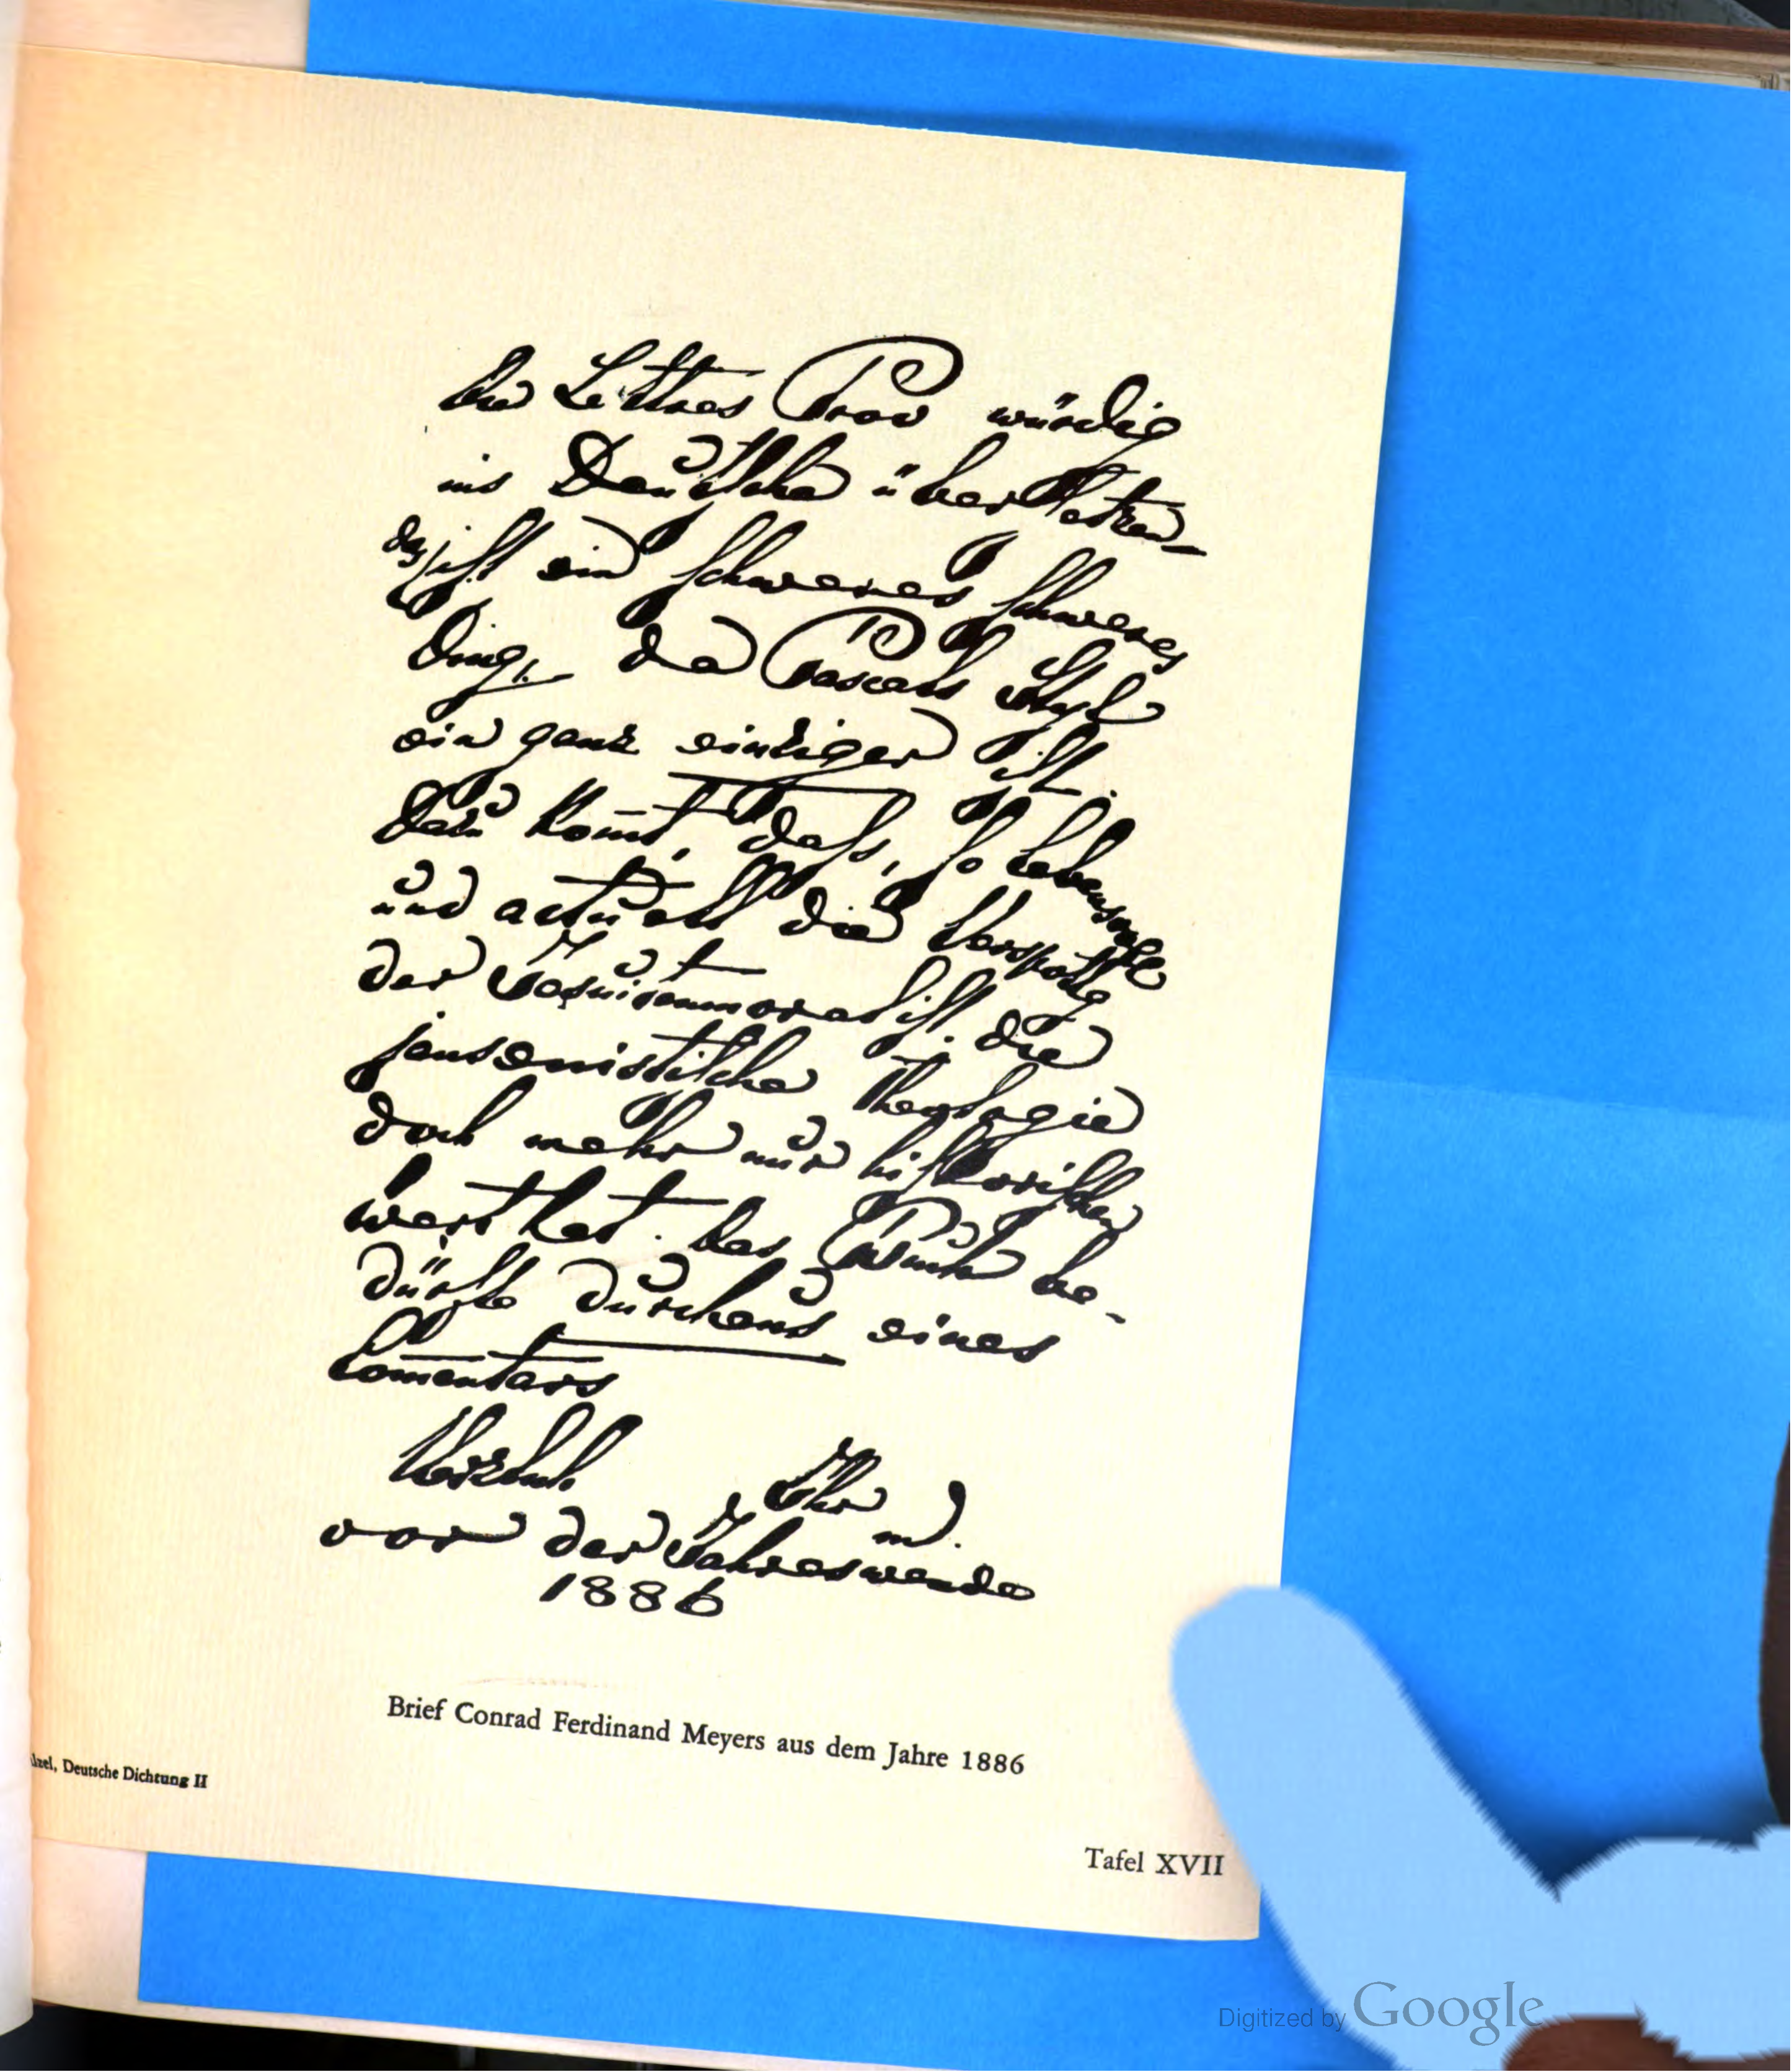 Die Lettres Prov würdig
ins Deutsche übersetzen –
das ist ein schweres schweres
Ding, da Pascals Styl
ein ganz einziger ist.
Dazu kom̄t, dass, so lebensvoll
und actuell die Verspottg
der Jesuitenmoral ist, die
jansenistische Theologie
doch mehr nur historischen
wert hat. Das Buch be-
dürfte durchaus eines
Com̄entars
Herzlich
Ihr
m.
vor der Jahreswende
1886
Brief Conrad Ferdinand Meyers aus dem Jahre 1886
lzel, Deutsche Dichtung II
Tafel XVII
Digitized by Google